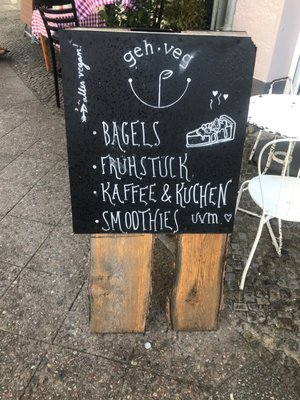 geh·veg
→ alles vegan!
· BAGELS
· FRÜHSTÜCK
· KAFFEE & KUCHEN
· SMOOTHIES uvm. ♡